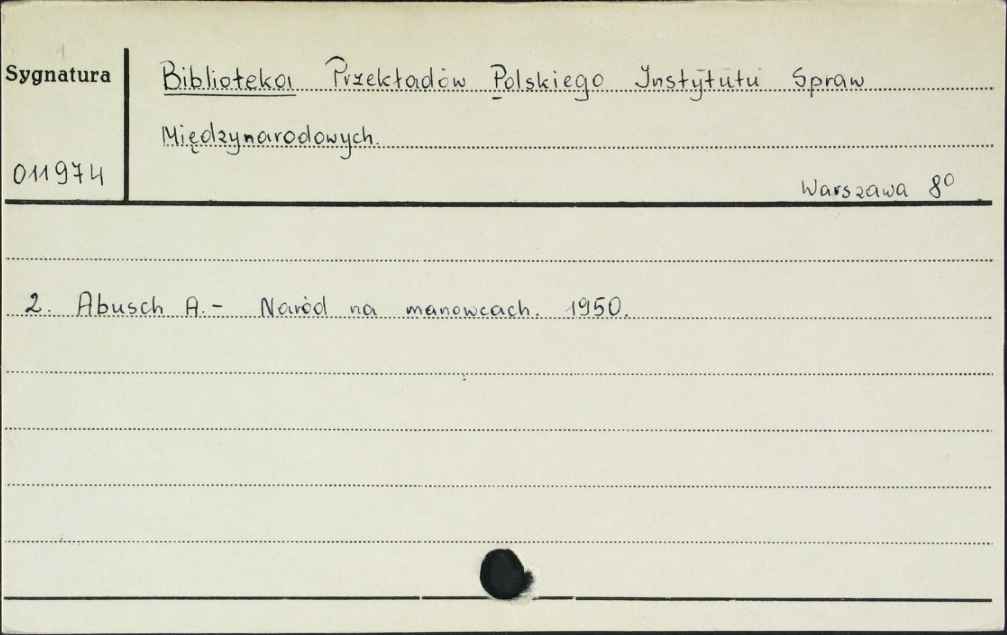 Sygnatura
Biblioteka Przekładów Polskiego Instytutu Spraw
Międzynarodowych.
011974
Warszawa 8º
2. Abusch A.- Naród na manowcach. 1950.